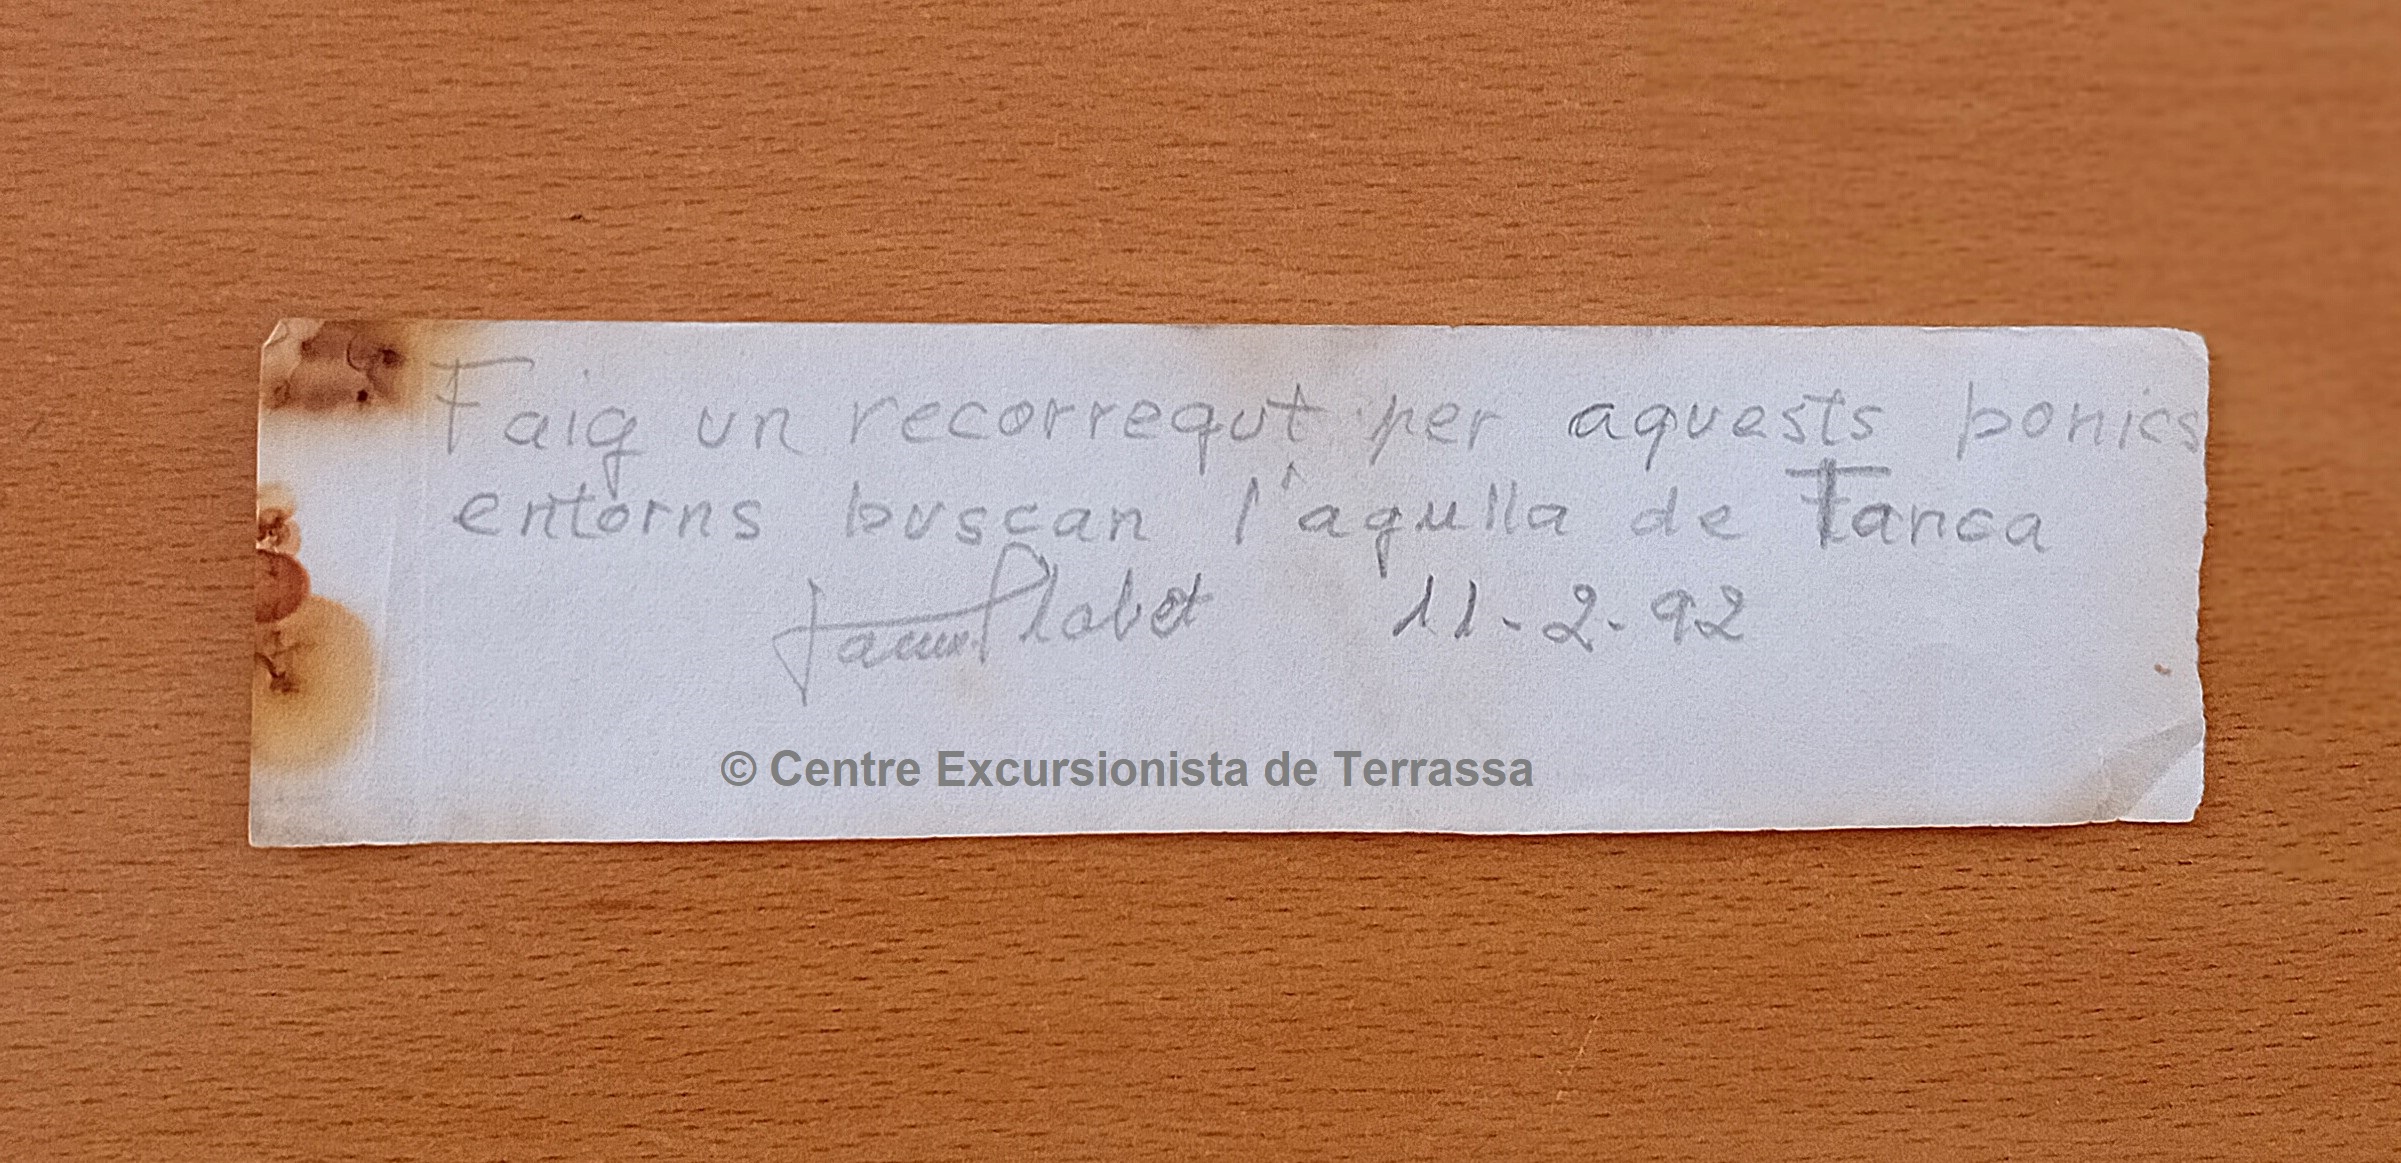 Faig un recorregut per aquests bonics
entorns buscan l'agulla de Tanca
Jaume Llobet 11-2-92
© Centre Excursionista de Terrassa